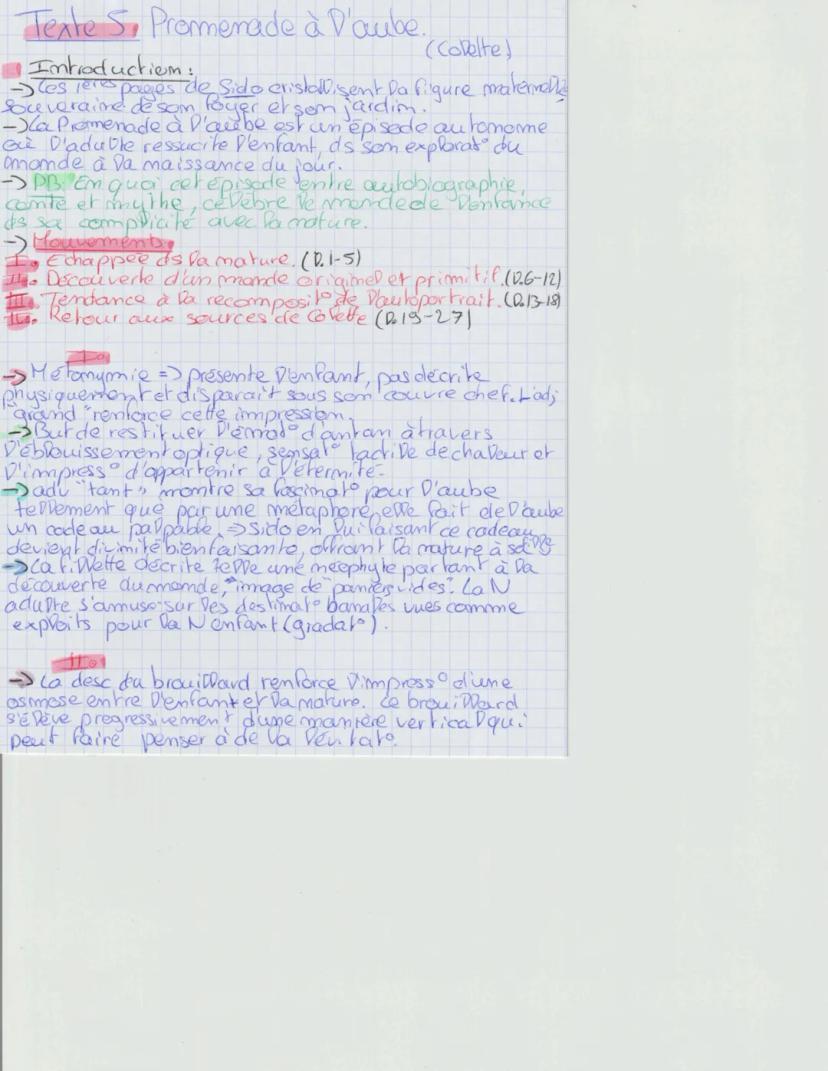 Texte 5, Promenade à l'aube.
(Colette)
Introduction :
-> Les 1ères pages de Sido cristallisent la figure maternelle
souveraine de son foyer et son jardin.
-> La Promenade à l'aube est un épisode autonome
où l'adulte ressucite l'enfant, ds son explorat° du
monde à la naissance du jour.
-> PB: En quoi cet épisode entre autobiographie,
conte et mythe, célèbre le monde de l'enfance
ds sa complicité avec la nature.
-> Mouvements
I. Echappée ds la nature. (l.1-5)
II. Découverte d'un monde originel et primitif. (l.6-12)
III. Tendance à la recomposit° de l'autoportrait. (l.13-18)
IV. Retour aux sources de Colette (l.19-27)
I.
-> Métonymie => présente l'enfant, pas décrite
physiquement et disparait sous son couvre chef. L'adj
"grand" renforce cette impression.
-> But de restituer l'émot° d'antan à travers
l'éblouissement optique, sensat° tactile de chaleur et
l'impress° d'appartenir à l'éternité.
-> adv "tant" montre sa fascinat° pour l'aube
tellement que par une métaphore, elle fait de l'aube
un cadeau palpable. => Sido en lui faisant ce cadeau
devient divinité bienfaisante, offrant la nature à sa fille
-> La fillette décrite telle une néophyte partant à la
découverte du monde, "image de paniers vides". La N
adulte s'amuse sur les destinat° banales vues comme
exploits pour la N enfant (gradat°).
II.
-> La desc du brouillard renforce l'impress° d'une
osmose entre l'enfant et la nature. Le brouillard
s'élève progressivement d'une manière vertical qui
peut faire penser à de la lévitat°.